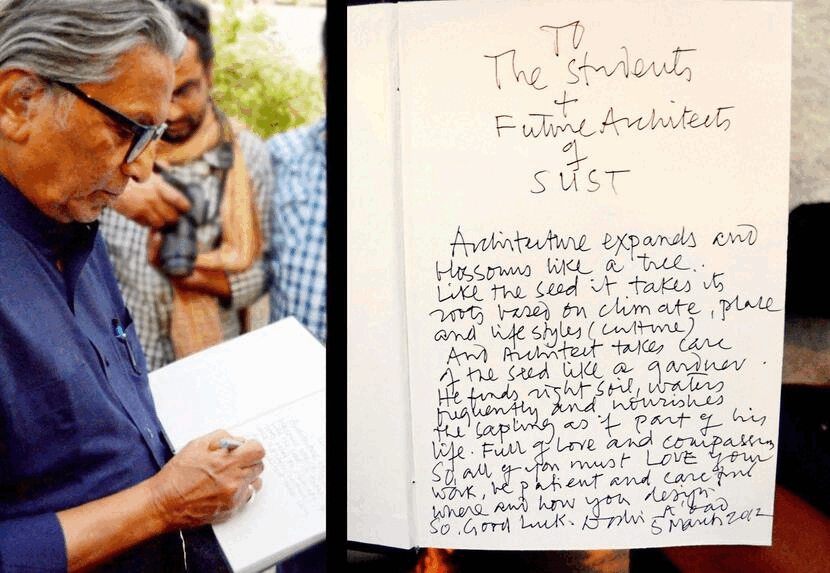 To
The Students
+
Future Architects
of
SUST
Architecture expands and
blossoms like a tree..
Like the seed it takes its
roots based on climate, place
and life styles (culture)
And Architect takes care
of the seed like a gardner.
He finds right soil, waters
frequently and nourishes
the sapling as if part of his
life. Full of love and compassion
So, all of you must LOVE your
work, be patient and careful
where and how you design
So. Good Luck. Doshi A'bad
5 March 2012